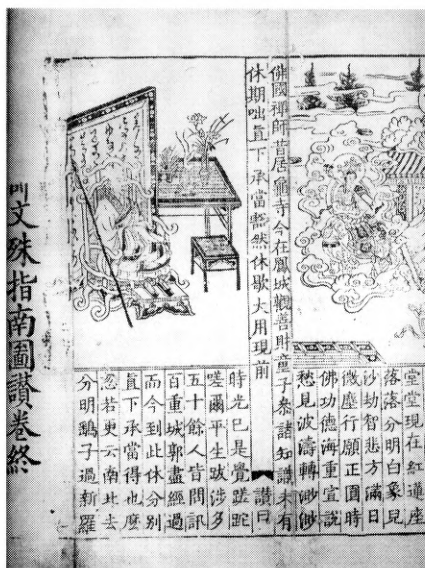 堂堂現在紅蓮座
落落分明白象兒
沙劫智悲方滿日
微塵行願正圓時
佛功德海重宣說
愁見波濤轉渺瀰
佛國禪師昔居龜寺今在鳳城觀善財童子參諸知識未有
休期咄直下承當豁然休歇大用現前
讚曰
時光已是覺蹉跎
嗟爾平生跋涉多
五十餘人皆問訊
百重城郭盡經過
而今到此休分別
直下承當得也麽
忽若更云南北去
分明鷂子過新羅
文殊指南圖讚卷終